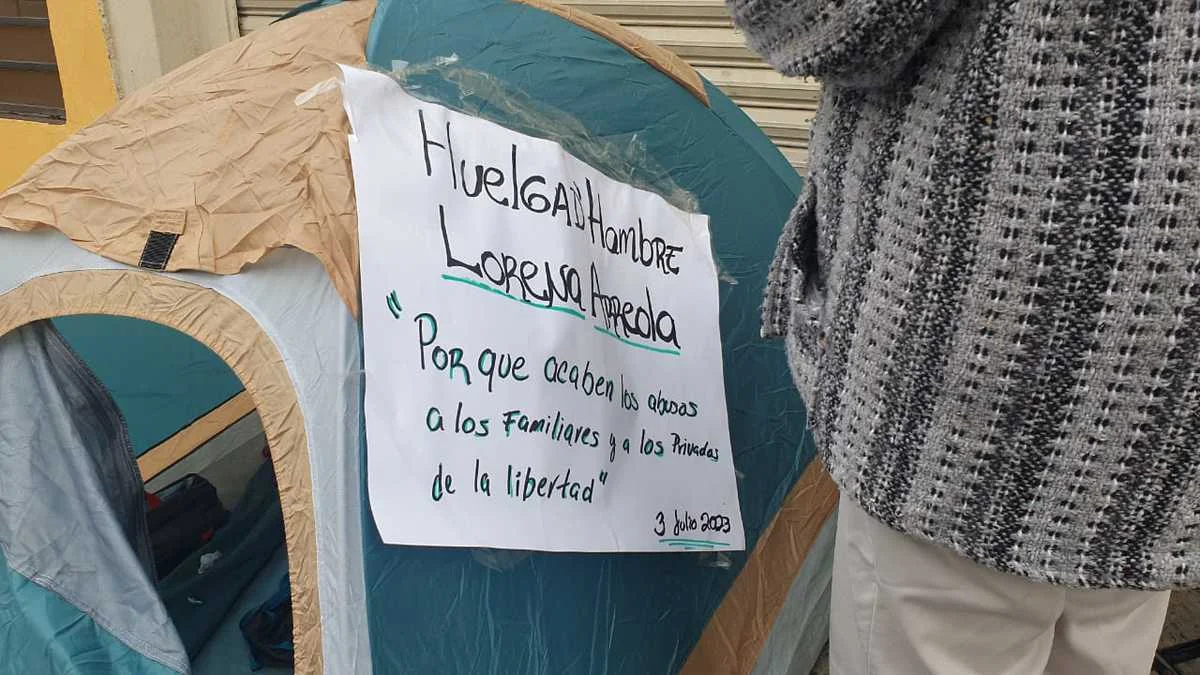 HuelGA D' HambRE
LoRENa ARReola
"PoR que acaben los abusos
a los Familiares y a los Privadas
de la libertad"
3 Julio 2023